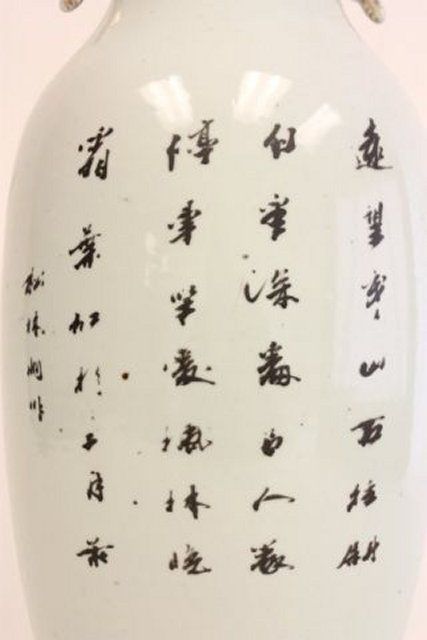 遠望寒山石徑斜
白雲深處有人家
停車坐愛楓林晚
霜葉紅於二月花
松林作